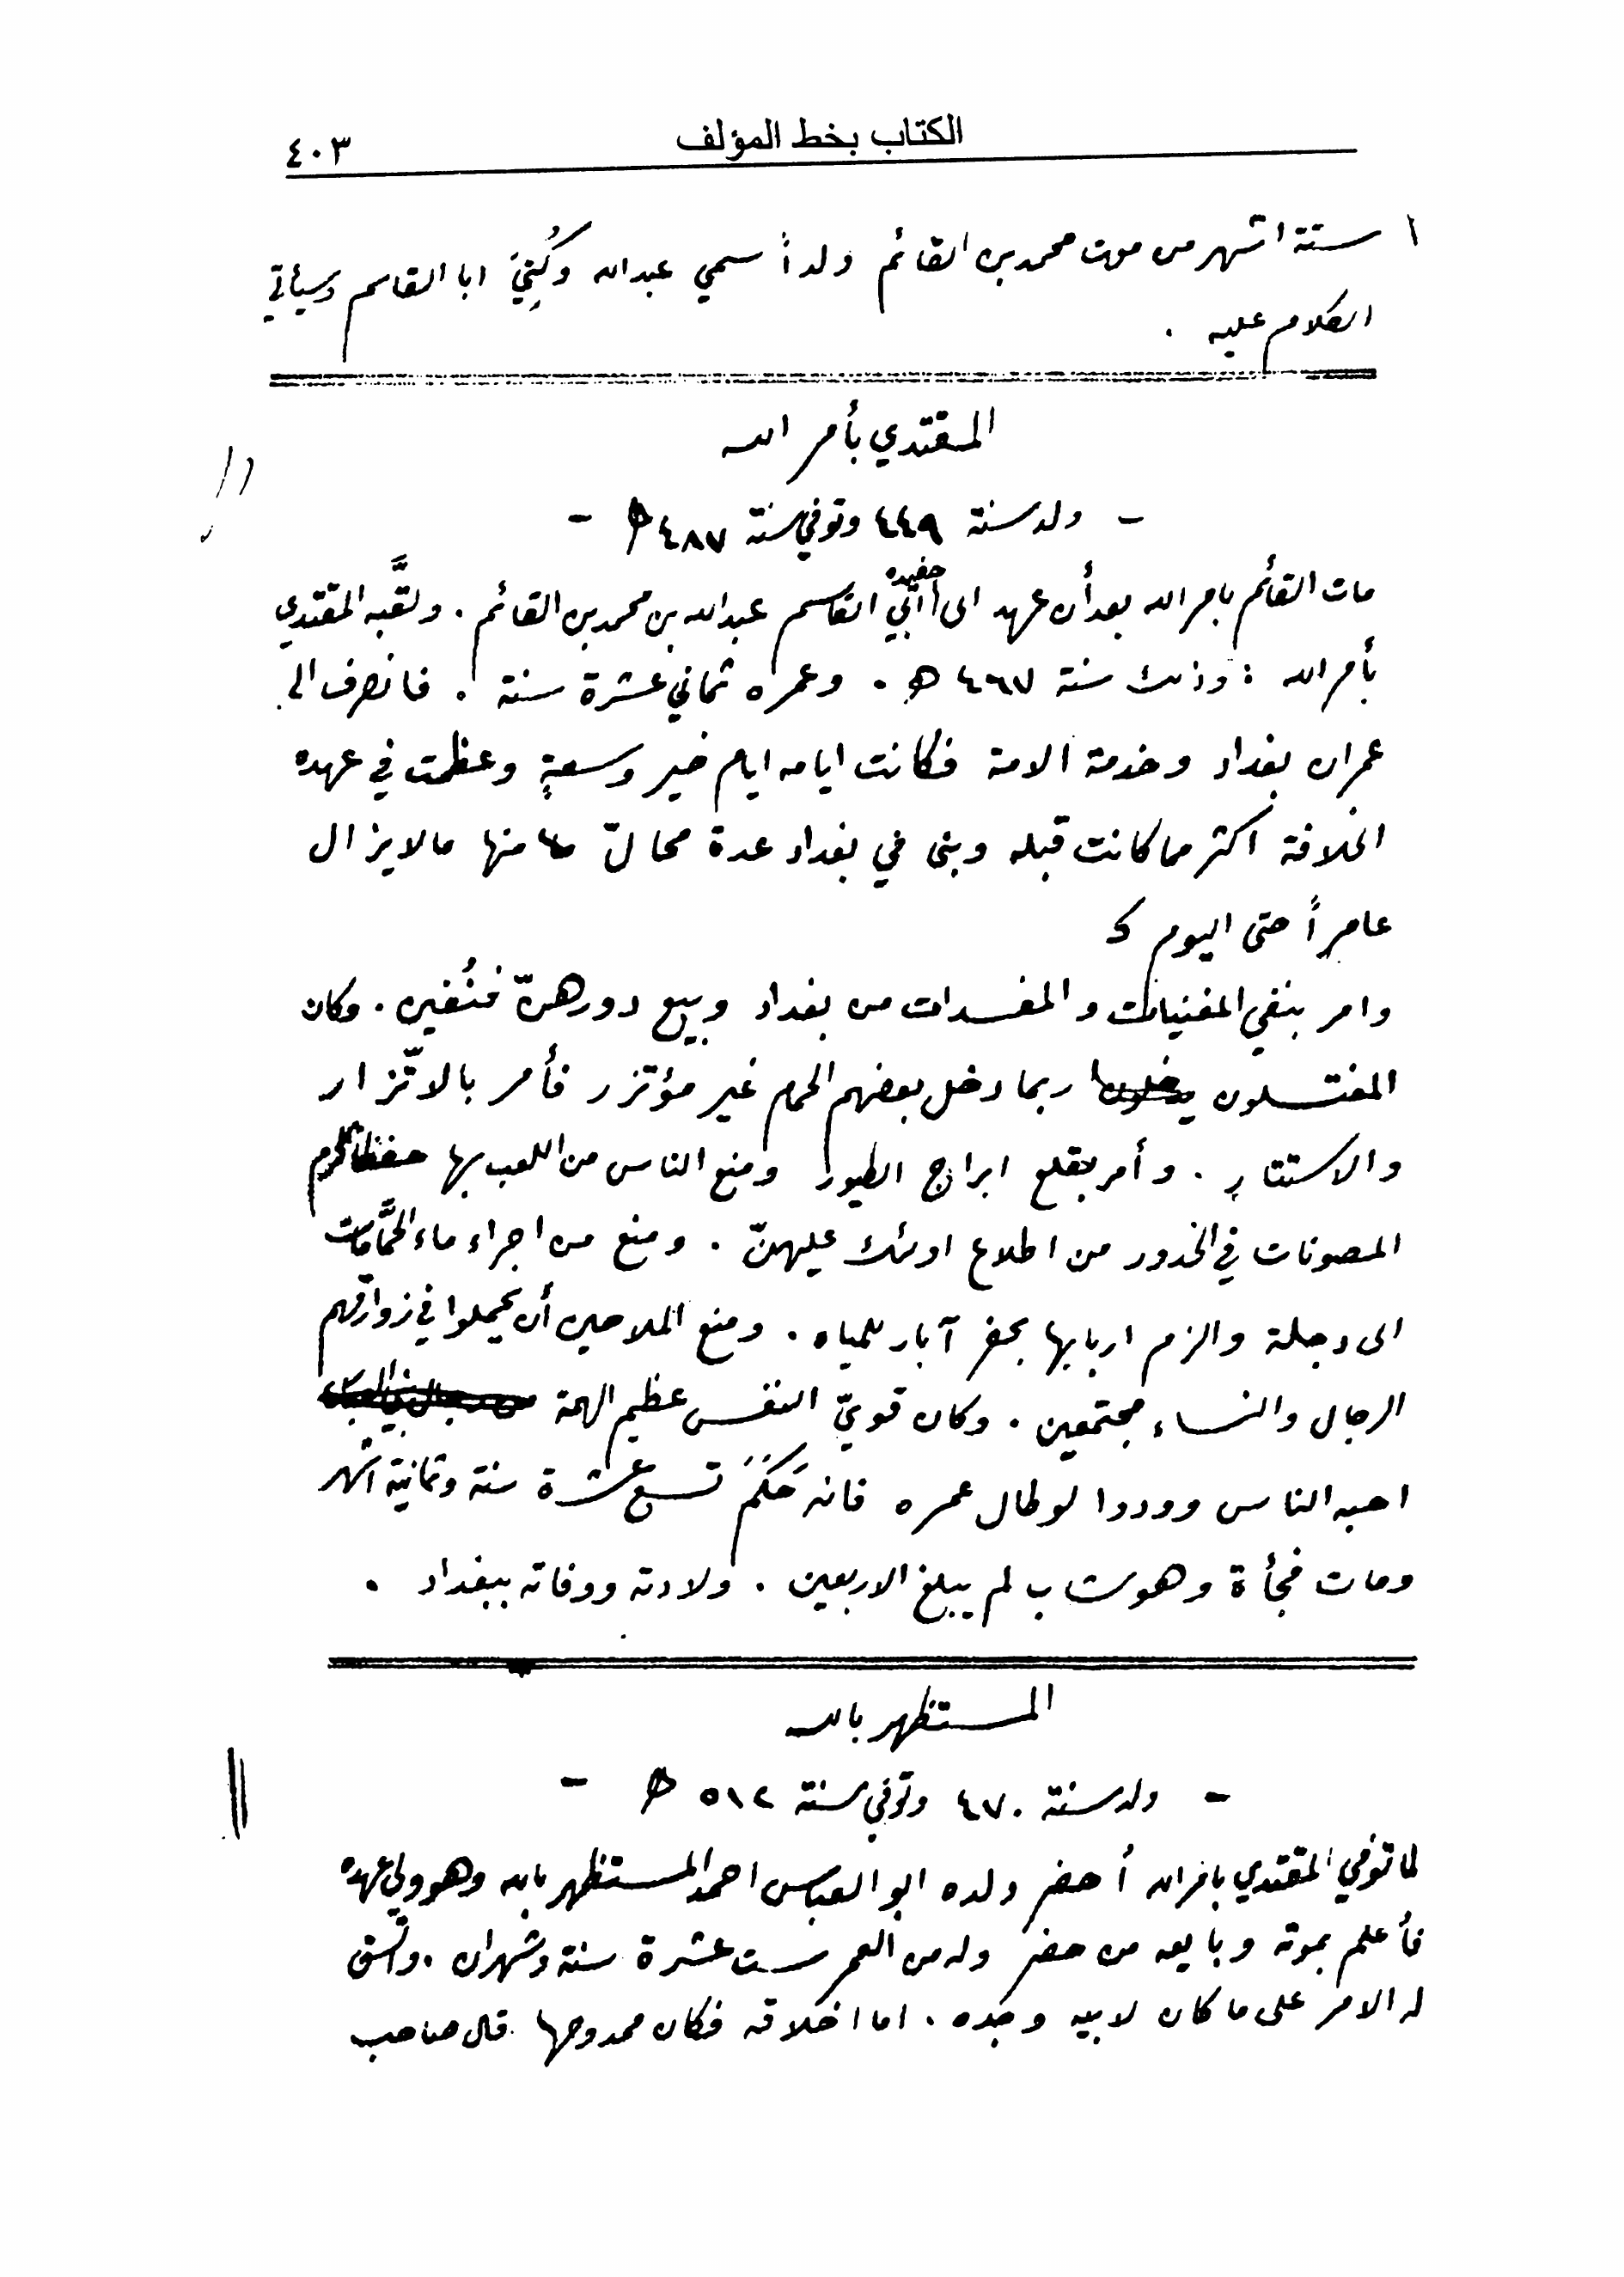 الكتاب بخط المؤلف
٤٠٣
ستة اشهر من موت محمد بن القائم ولداً سمي عبدالله وكُنِيَ ابا القاسم وسيأتي
الكلام عليه .
المقتدي بأمر الله
- ولد سنة ٤٤٩ وتوفي سنة ٤٨٧ ه -
مات القائم بامر الله بعد أن عهد الى حفيده أبي القاسم عبدالله بن محمد بن القائم . ولقَّبه المقتدي
بأمر الله : وذلك سنة ٤٦٧ ه . وعمره ثماني عشرة سنة . فانصرف الى
عمران بغداد وخدمة الامة فكانت ايامه ايام خير وسعةٍ وعظمت في عهده
الخلافة اكثر مما كانت قبله وبنى في بغداد عدة محالّ منها مالا يزال
عامراً حتى اليوم
وامر بنفي المغنيات والمفسدات من بغداد وبيع دورهنّ فنُفين . وكان
المغتسلون ربما دخل بعضهم الحمام غير مؤتزر فأمر بالاتّزار
والاستتار . وأمر بقلع ابراج الطيور ومنع الناس من اللعب بها حفظا لحرم
المصونات في الخدور من اطلاع اولئك عليهنّ . ومنع من اجراء ماء الحمَّامات
الى دجلة والزم اربابها بحفر آبار للمياه . ومنع الملاحين أن يحملوا في زوارقهم
الرجال والنساء مجتمعين . وكان قويّ النفس عظيم الهمة
احبه الناس وودوا لو طال عمره فانه حَكَمَ تسع عشرة سنة وثمانية اشهر
ومات فجأة وهو شاب لم يبلغ الاربعين . ولادته ووفاته ببغداد .
المستظهر بالله
- ولد سنة ٤٧٠ وتوفي سنة ٥١٢ ه -
لما توفي المقتدي بامر الله أحضر ولده ابو العباس احمد المستظهر بالله وهو ولي عهده
فأعلم بموته وبايعه من حضر وله من العمر ست عشرة سنة وشهران . واتسق
له الامر على ما كان لابيه وجده . اما اخلاقه فكان ممدوحها . قال صاحب